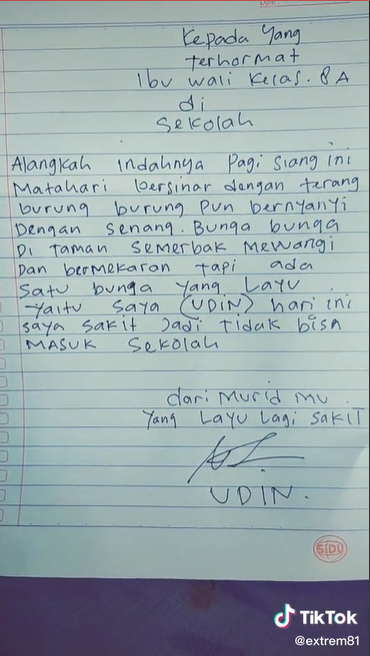 Kepada Yang
terhormat
Ibu wali Kelas. 8A
di
Sekolah
Alangkah Indahnya Pagi siang ini
Matahari bersinar dengan terang
burung burung Pun bernyanyi
Dengan senang. Bunga bunga
Di Taman Semerbak Mewangi
Dan bermekaran Tapi ada
Satu bunga yang Layu.
Yaitu Saya (UDIN) hari ini
saya sakit Jadi Tidak bisa
MASUK Sekolah
dari Murid mu.
Yang Layu Lagi SAKIT
UDIN.
SIDU
TikTok
@extrem81